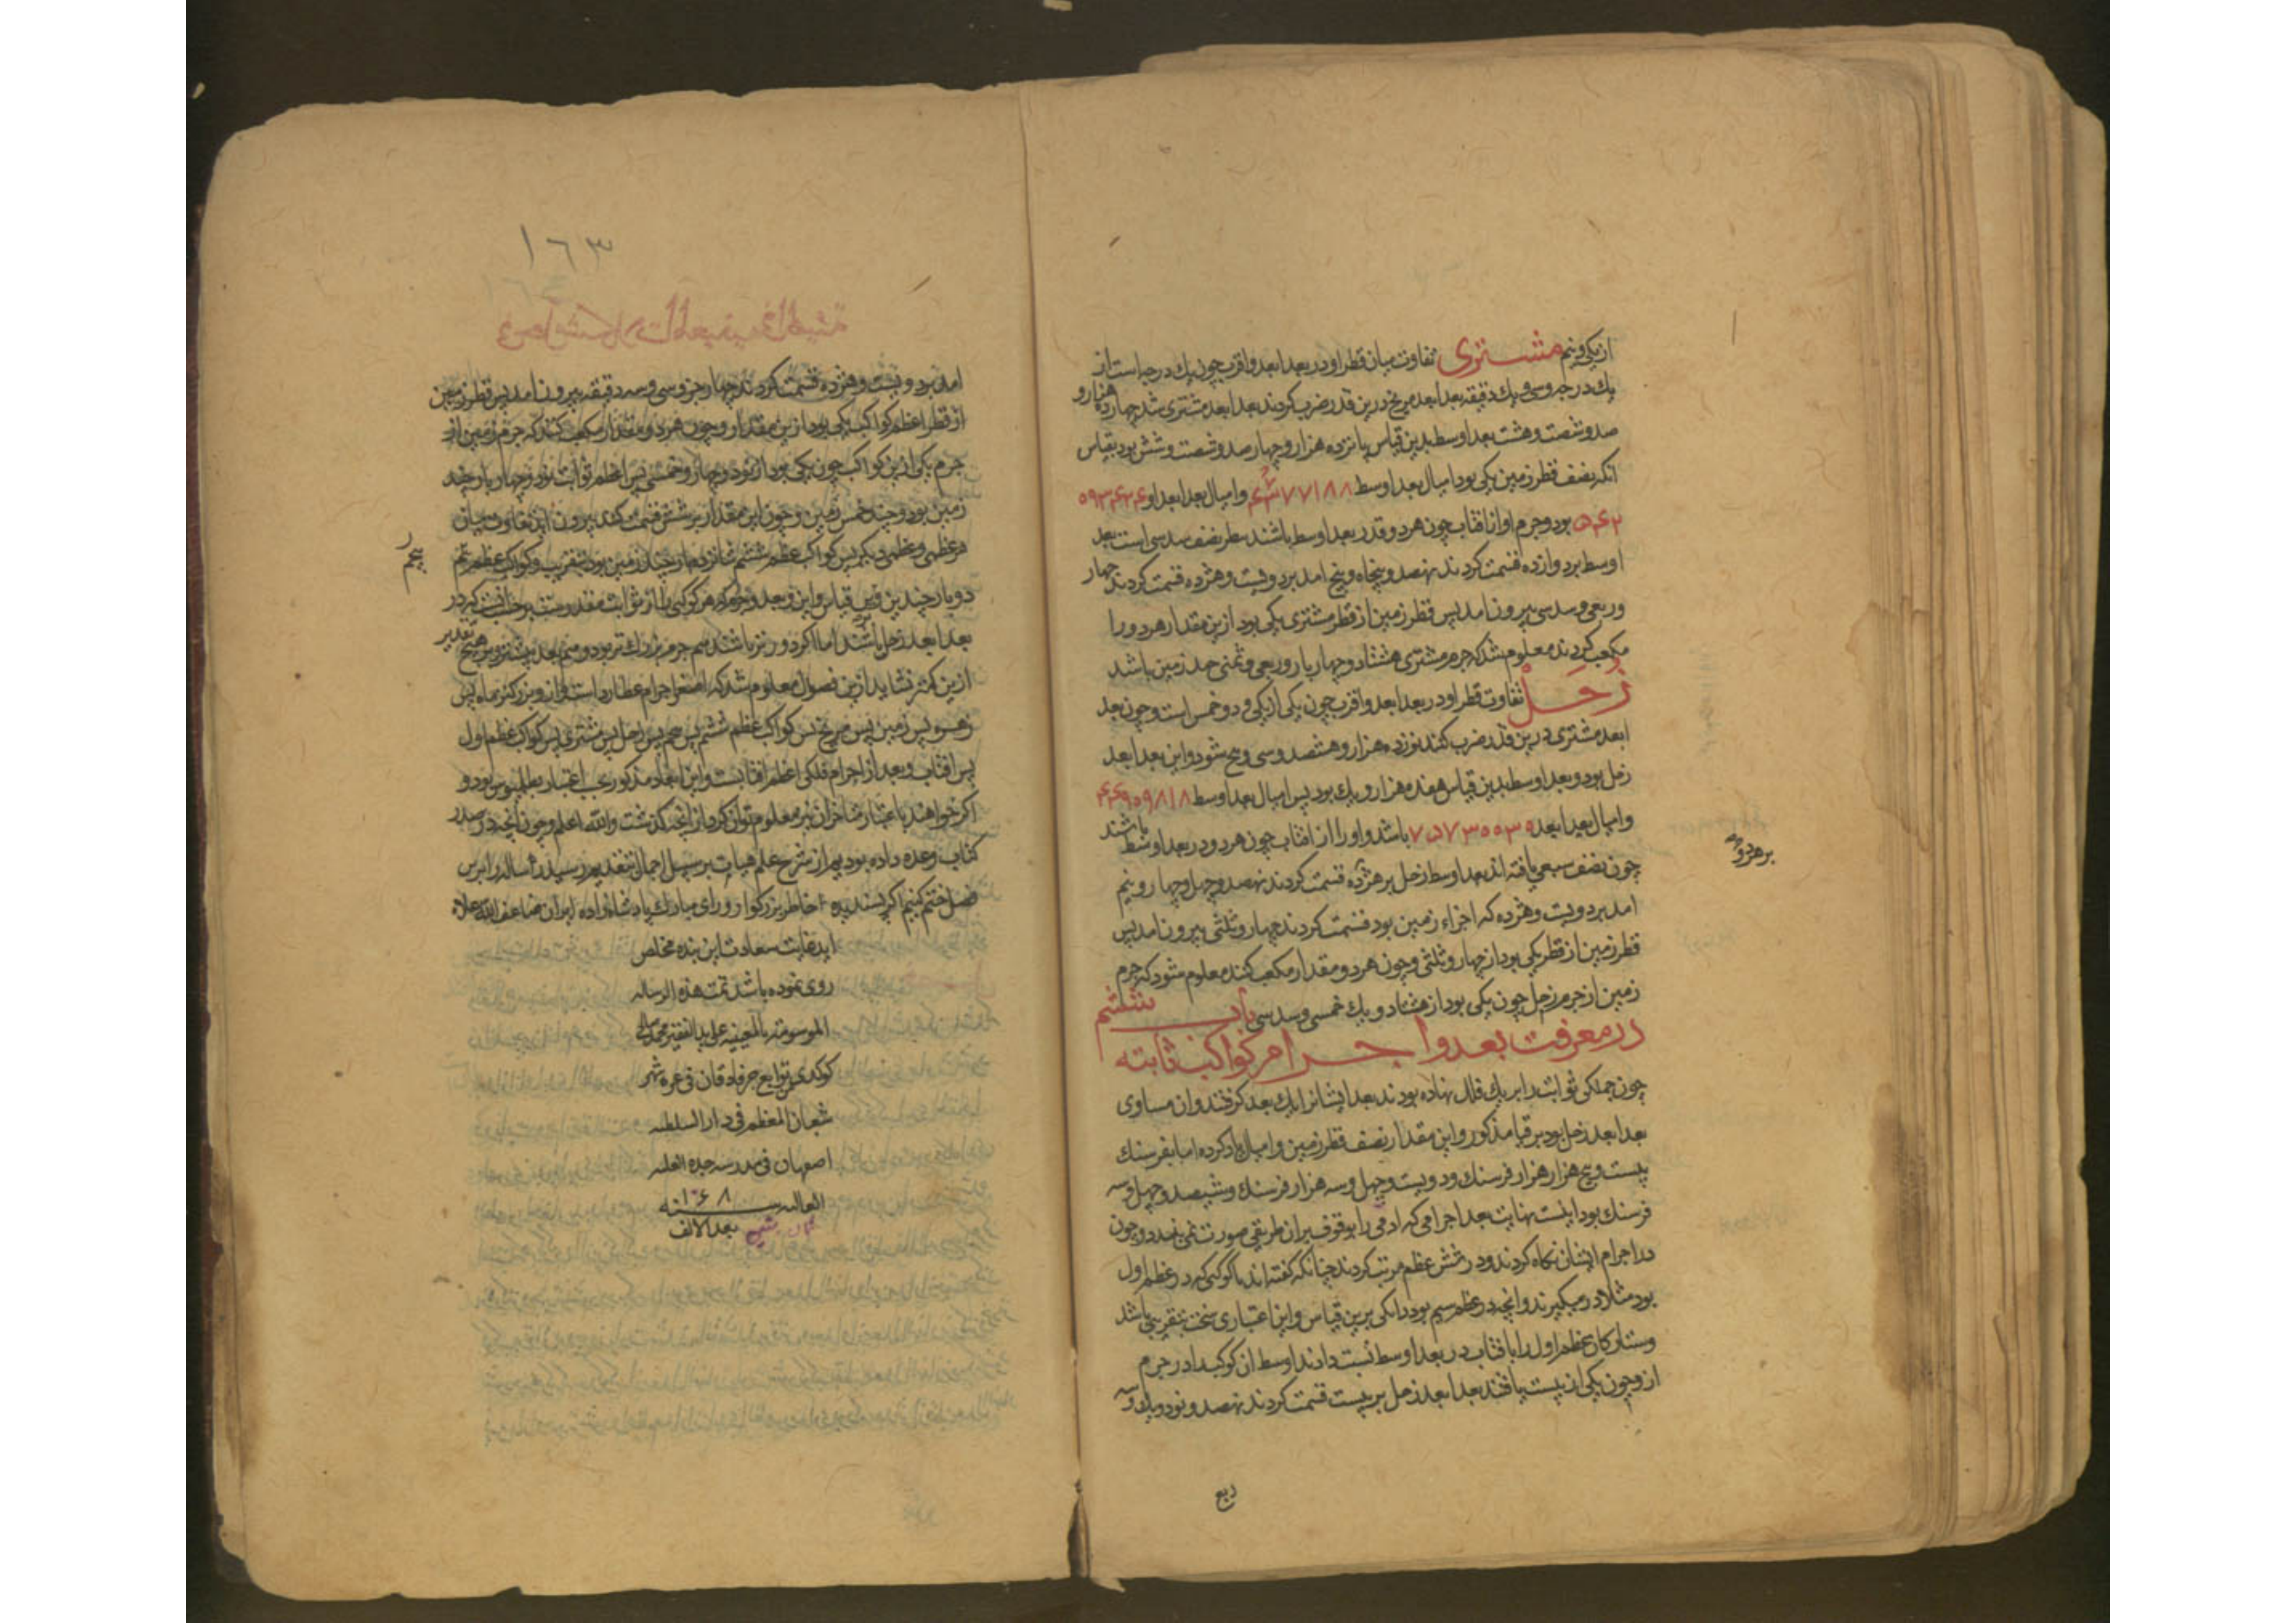 از یکی و نیم مشتری تفاوت میان قطر او در بعد ابعد و اقرب چون یك درجه است از
یك درجه و سی و یك دقیقه بعد ابعد مریخ درین قدر ضرب کردند بعد ابعد مشتری شد چهارده هزار و
صد و شصت و هشت بعد اوسط بدین قیاس یانزده هزار و چهار صد و شصت و شش بود بقیاس
آنکه نصف قطر زمین یکی بود امیال بعد اوسط و امیال بعد ابعد او
بود و جرم او از آفتاب چون هر دو قدر بعد اوسط باشند نصف سدسی است بعد
اوسط بر دوازده قسمت کردند نهصد و پنجاه و پنج امد بر دویست و هژده قسمت کردند چهار
و ربعی و سدسی بیرون امد پس قطر زمین از قطر مشتری یکی بود ازین مقدار هر دو را
مکعب کردند معلوم شد که جرم مشتری هشتاد و چهار بار و ربعی و ثمنی چند زمین باشد
زحل تفاوت قطر او در بعد ابعد و اقرب چون یکی از یکی و دو خمس است و چون بعد
ابعد مشتری درین قدر ضرب کنند نوزده هزار و هشتصد و سی و پنج شود و این بعد ابعد
زحل بود و بعد اوسط بدین قیاس هفده هزار و یك بود پس امیال بعد اوسط
و امیال بعد ابعد باشد و او را از آفتاب چون هر دو در بعد اوسط باشند
چون نصف سبعی یافته اند بعد اوسط زحل بر هژده قسمت کردند نهصد و چهل و چهار و نیم
بر هژده
امد بر دویست و هژده که اجزاء زمین بود قسمت کردند چهار و ثلثی بیرون امد پس
قطر زمین از قطر یکی بود از چهار و ثلثی و چون هر دو مقدار مکعب کنند معلوم شود که جرم
زمین از جرم زحل چون یکی بود از هشتاد و یك خمسی و سدسی باب ششم
در معرفت بعد و اجرام کواکب ثابته
چون جملکی ثوابت را بر یك فلك نهاده بودند بعد ایشانرا یك بعد کرفتند و ان مساوی
بعد ابعد زحل بود بر قیاس مذکور و این مقدار نصف قطر زمین و امیال یاد کرده اما بفرسنك
بیست و پنج هزار هزار فرسنك و دویست و چهل و سه هزار فرسنك و ششصد و چهل و سه
فرسنك بود اینست نهایت بعد اجرامی که ادمی را بوقوف بر ان طریقی صورت نمی بندد و چون
در اجرام ایشان نکاه کردند و در شش عظم مرتب کردند چنانکه کفته اند با کوکبی که در عظم اول
بود مثلا در میکیرند و انچه در عظم سیم بود دانکی برین قیاس و این اعتباری سخت بتقریب باشد
و ستارکان عظم اول را بآفتاب در بعد اوسط نسبت دادند اوسط ان کوکب را در جرم
ازو چون یکی از بیست یافتند بعد ابعد زحل بر بیست قسمت کردند نهصد و نود و یك و سه
ربع
۱٦۳
امد بر دویست و هژده قسمت کردند چهار جزو و سی و سه دقیقه بیرون امد پس قطر زمین
از قطر اعظم کواکب یکی بود ازین مقدار و چون هر دو مقدار مکعب کنند که جرم زمین از
جرم یکی ازین کواکب چون یکی بود از نود و چهار و خمسی پس اعظم ثوابت نود و چهار بار چند
زمین بود و چند خمس زمین و چون این مقدار بر شش قسمت کنند بیرون اید تفاوت میان
هر عظمی و عظمی دیکر پس کواکب عظم ششم شانزده بار چند زمین بود بتقریب و کواکب عظم پنجم
پنجم
دو بار چندین و برین قیاس و این و بعد و جرم که هر کوکبی را از ثوابت مقدر است بر حساب انست که در
بعد ابعد زحل باشند اما اکر دورتر باشند هم جرم بزرك تر بود و هم بعد بیشتر و بر هیچ تقدیر
ازین کمتر نشاید ازین فصول معلوم شد که اصغر اجرام عطارد است و ازو بزرکتر ماه پس
زهره پس زمین پس مریخ پس کواکب عظم ششم پس پنجم پس زحل پس مشتری پس کواکب عظم اول
پس آفتاب و بعد از اجرام فلکی اعظم آفتابست و این ابعاد مذکور بحسب اعتبار بطلمیوس بود و
اکر خواهند باعتبار متاخران نیز معلوم توان کرد از انچه کذشت والله اعلم و چون انچه در صدر
کتاب وعده داده بودیم از شرح علم هیات بر سبیل اجمال بتقدیم رسید رساله را برین
فصل ختم کنیم اکر پسندیده خاطر بزرکوار و رای مبارك پادشاهزاده ایران ضاعف الله علاه
اید غایت سعادت این بنده مخلص
روی نموده باشد تمت هذه الرساله
الموسومه بالمعینیه علی ید الفقیر
توابع جرفادقان فی غره شهر
شعبان المعظم فی دار السلطنه
اصفهان فی مدرسه جده العلیه
العالیه سنه ۱۰۶۸
ثمان ستین بعد الالف